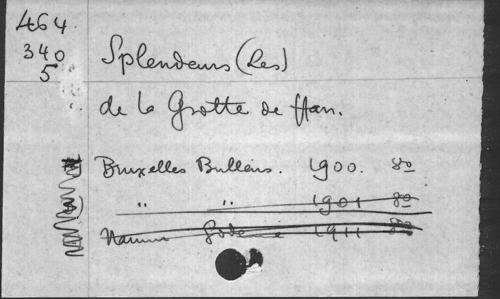 464
340
5
Splendeurs (Les)
de la Grotte de Han.
Bruxelles Bullens. 1900. 8º
" " 1901 8º
Namur Godenne 1911 8º